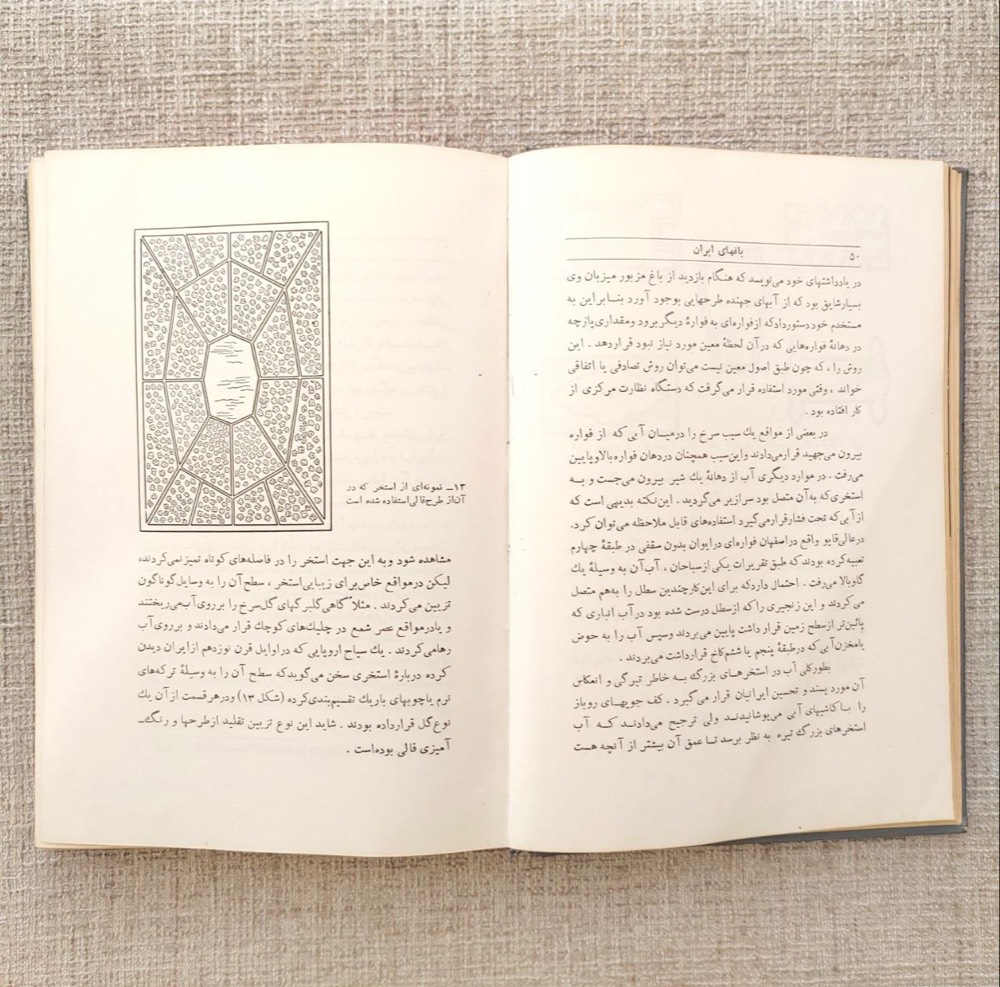 ۵۰ باغهای ایران
در یادداشتهای خود می‌نویسد که هنگام بازدید از باغ مزبور میزبان وی
بسیار شایق بود که از آبهای جهنده طرحهایی بوجود آورد بنابراین به
مستخدم خود دستور داد که از فواره‌ای به فوارهٔ دیگر برود و مقداری پارچه
در دهانهٔ فواره‌هایی که در آن لحظهٔ معین مورد نیاز نبود قرار دهد . این
روش را ، که چون طبق اصول معین نیست می‌توان روش تصادفی یا اتفاقی
خواند ، وقتی مورد استفاده قرار می‌گرفت که دستگاه نظارت مرکزی از
کار افتاده بود .
در بعضی از مواقع یك سیب سرخ را درمیان آبی که از فواره
بیرون می‌جهید قرار می‌دادند و این سیب همچنان در دهان فواره بالا و پایین
می‌رفت . در موارد دیگری آب از دهانهٔ یك شیر بیرون می‌جست و به
استخری که به آن متصل بود سرازیر می‌گردید . این نکته بدیهی است که
از آبی که تحت فشار قرار می‌گیرد استفاده‌های قابل ملاحظه می‌توان کرد.
در عالی‌قاپو واقع در اصفهان فواره‌ای در ایوان بدون سقفی در طبقهٔ چهارم
تعبیه کرده بودند که طبق تقریرات یکی از سیاحان ، آب آن به وسیلهٔ یك
گاو بالا می‌رفت . احتمال دارد که برای این کار چندین سطل را به‌هم متصل
می‌کردند و این زنجیری را که از سطل درست شده بود در آب انباری که
پائین‌تر از سطح زمین قرار داشت پایین می‌بردند و سپس آب را به حوض
یا مخزن آبی که در طبقهٔ پنجم یا ششم کاخ قرار داشت می‌بردند .
بطور کلی آب در استخرهای بزرگ به خاطر تیرگی و انعکاس
آن مورد پسند و تحسین ایرانیان قرار می‌گیرد . کف جویهای روباز
را با کاشیهای آبی می‌پوشانیدند ولی ترجیح می‌دادند که آب
استخرهای بزرگ تیره به نظر برسد تا عمق آن بیشتر از آنچه هست
۱۳ـ نمونه‌ای از استخر که در
آن از طرح قالی استفاده شده است
مشاهده شود و به این جهت استخر را در فاصله‌های کوتاه تمیز نمی‌کردند،
لیکن در مواقع خاص برای زیبایی استخر ، سطح آن را به وسایل گوناگون
تزیین می‌کردند . مثلاً گاهی گلبرگهای گل سرخ را بر روی آب می‌ریختند
و یا در مواقع عصر شمع در چلیك‌های کوچك قرار می‌دادند و بر روی آب
رها می‌کردند . یك سیاح اروپایی که در اوایل قرن نوزدهم از ایران دیدن
کرده دربارهٔ استخری سخن می‌گوید که سطح آن را به وسیلهٔ ترکه‌های
نرم یا چوبهای باریك تقسیم‌بندی کرده (شکل ۱۳) و در هر قسمت از آن یك
نوع گل قرار داده بودند . شاید این نوع تزیین تقلید از طرحها و رنگ‌ـ
آمیزی قالی بوده است .